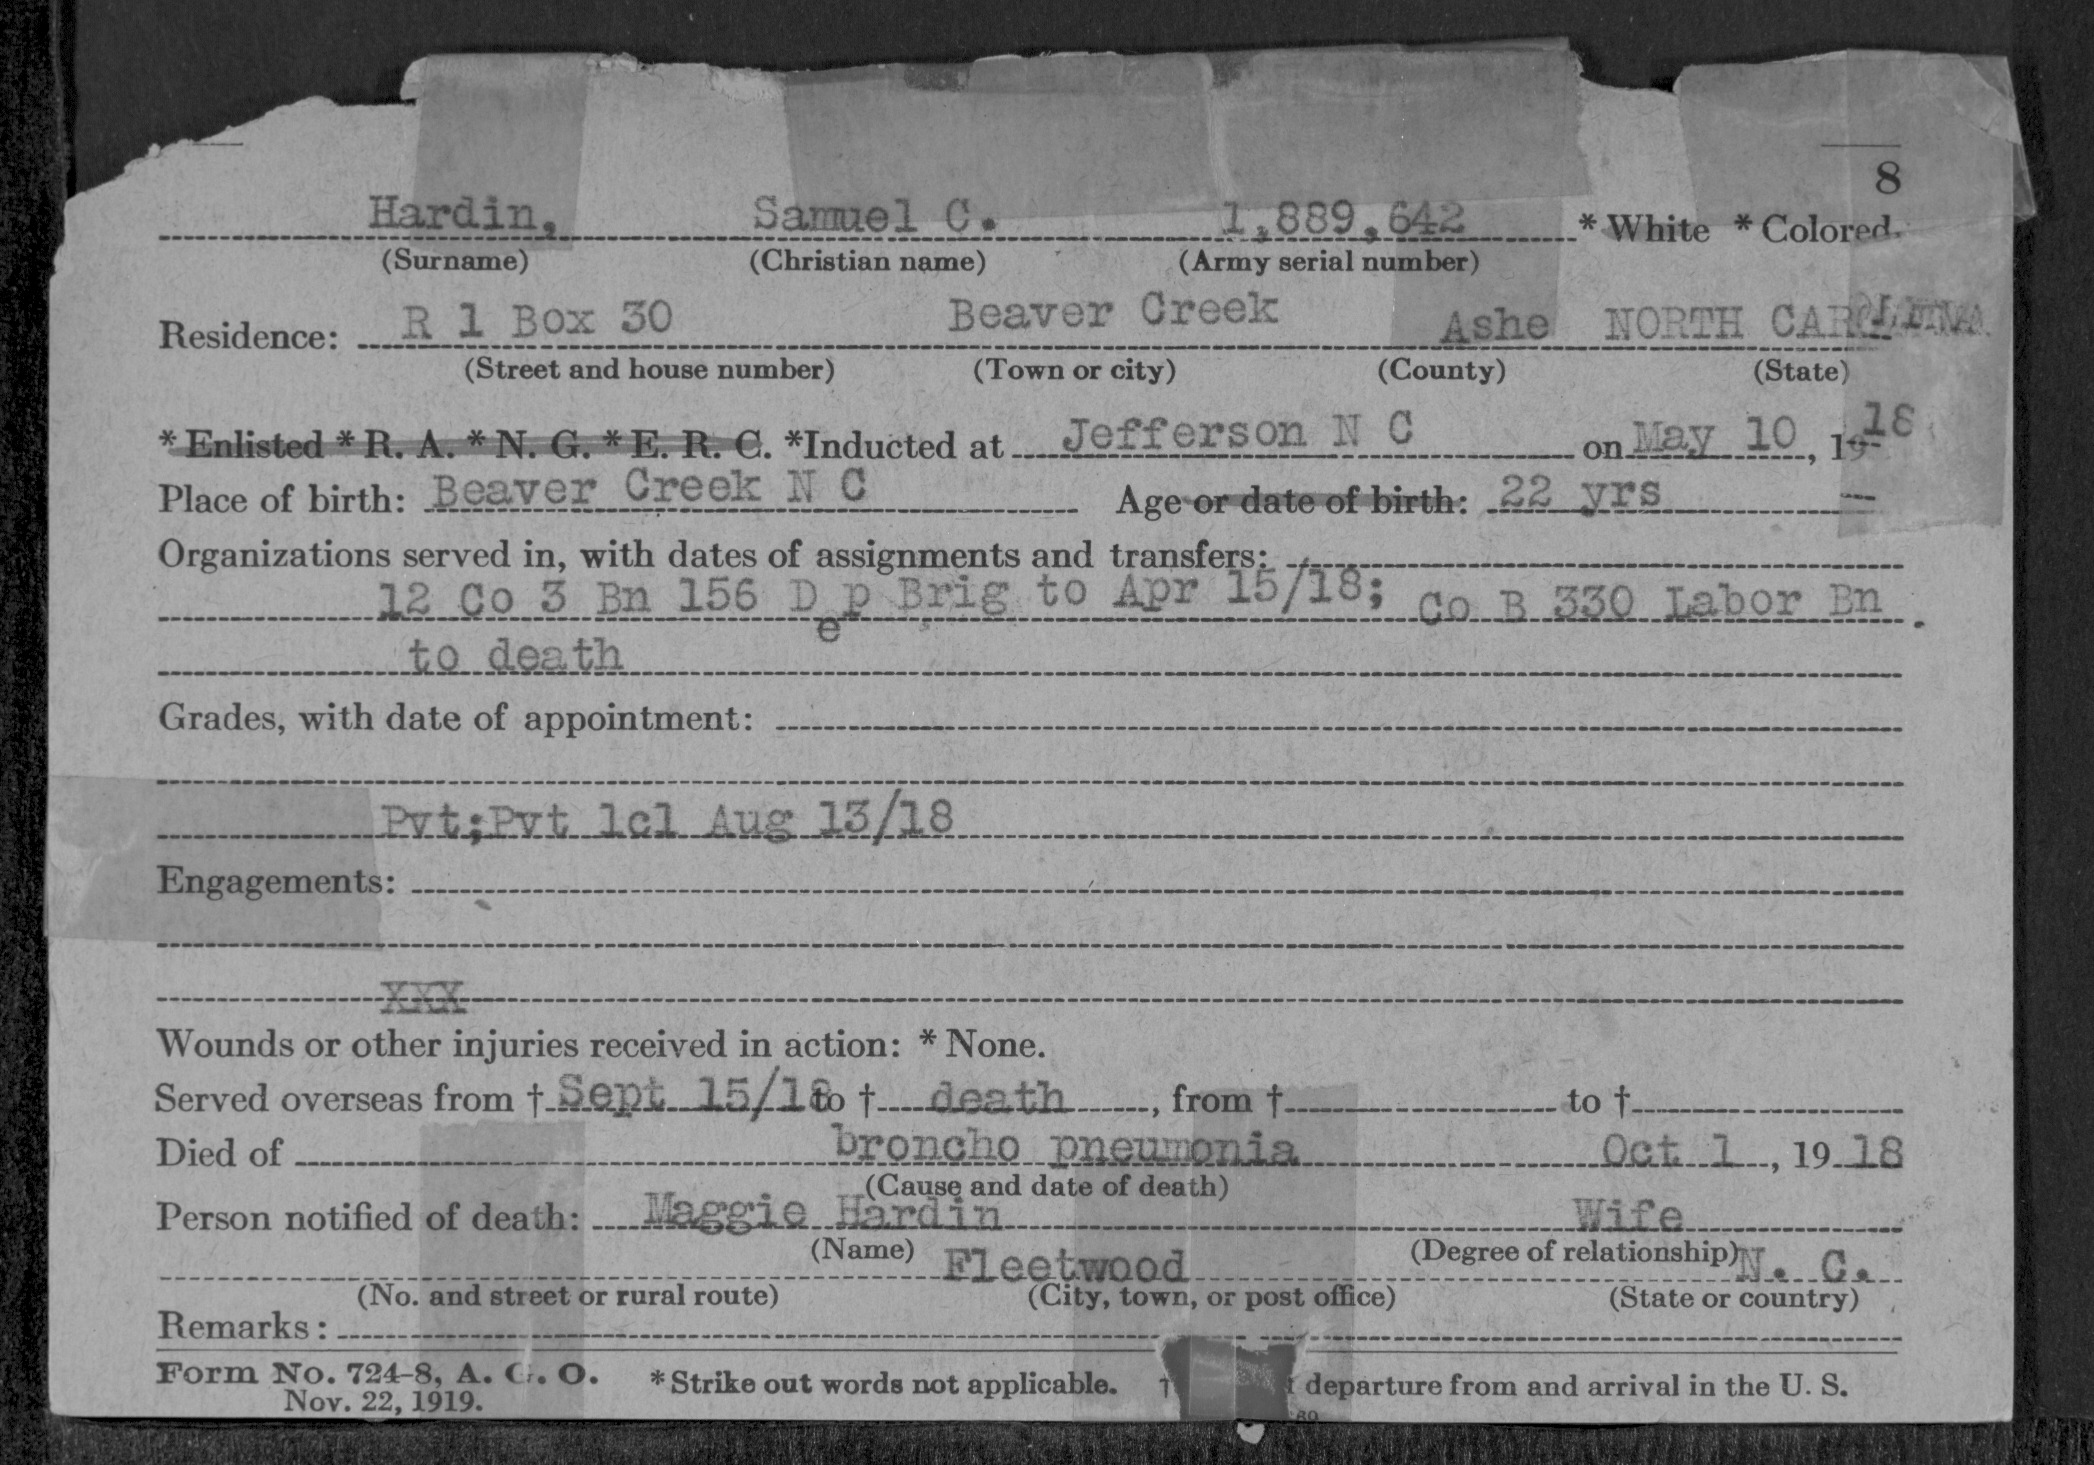 8
Hardin, Samuel C. 1,889,642 * White * Colored.
(Surname) (Christian name) (Army serial number)
Residence: R 1 Box 30 Beaver Creek Ashe NORTH CAROLINA
(Street and house number) (Town or city) (County) (State)
* Enlisted * R. A. * N. G. * E. R. C. *Inducted at Jefferson N C on May 10, 1918
Place of birth: Beaver Creek N C Age or date of birth: 22 yrs
Organizations served in, with dates of assignments and transfers:
12 Co 3 Bn 156 Dep Brig to Apr 15/18; Co B 330 Labor Bn
to death
Grades, with date of appointment:
Pvt;Pvt 1cl Aug 13/18
Engagements:
XXX
Wounds or other injuries received in action: * None.
Served overseas from † Sept 15/18 to † death, from † to †
Died of broncho pneumonia Oct 1, 19 18
(Cause and date of death)
Person notified of death: Maggie Hardin Wife
(Name) (Degree of relationship)
Fleetwood N. C.
(No. and street or rural route) (City, town, or post office) (State or country)
Remarks:
Form No. 724-8, A. G. O. * Strike out words not applicable. † departure from and arrival in the U. S.
Nov. 22, 1919.